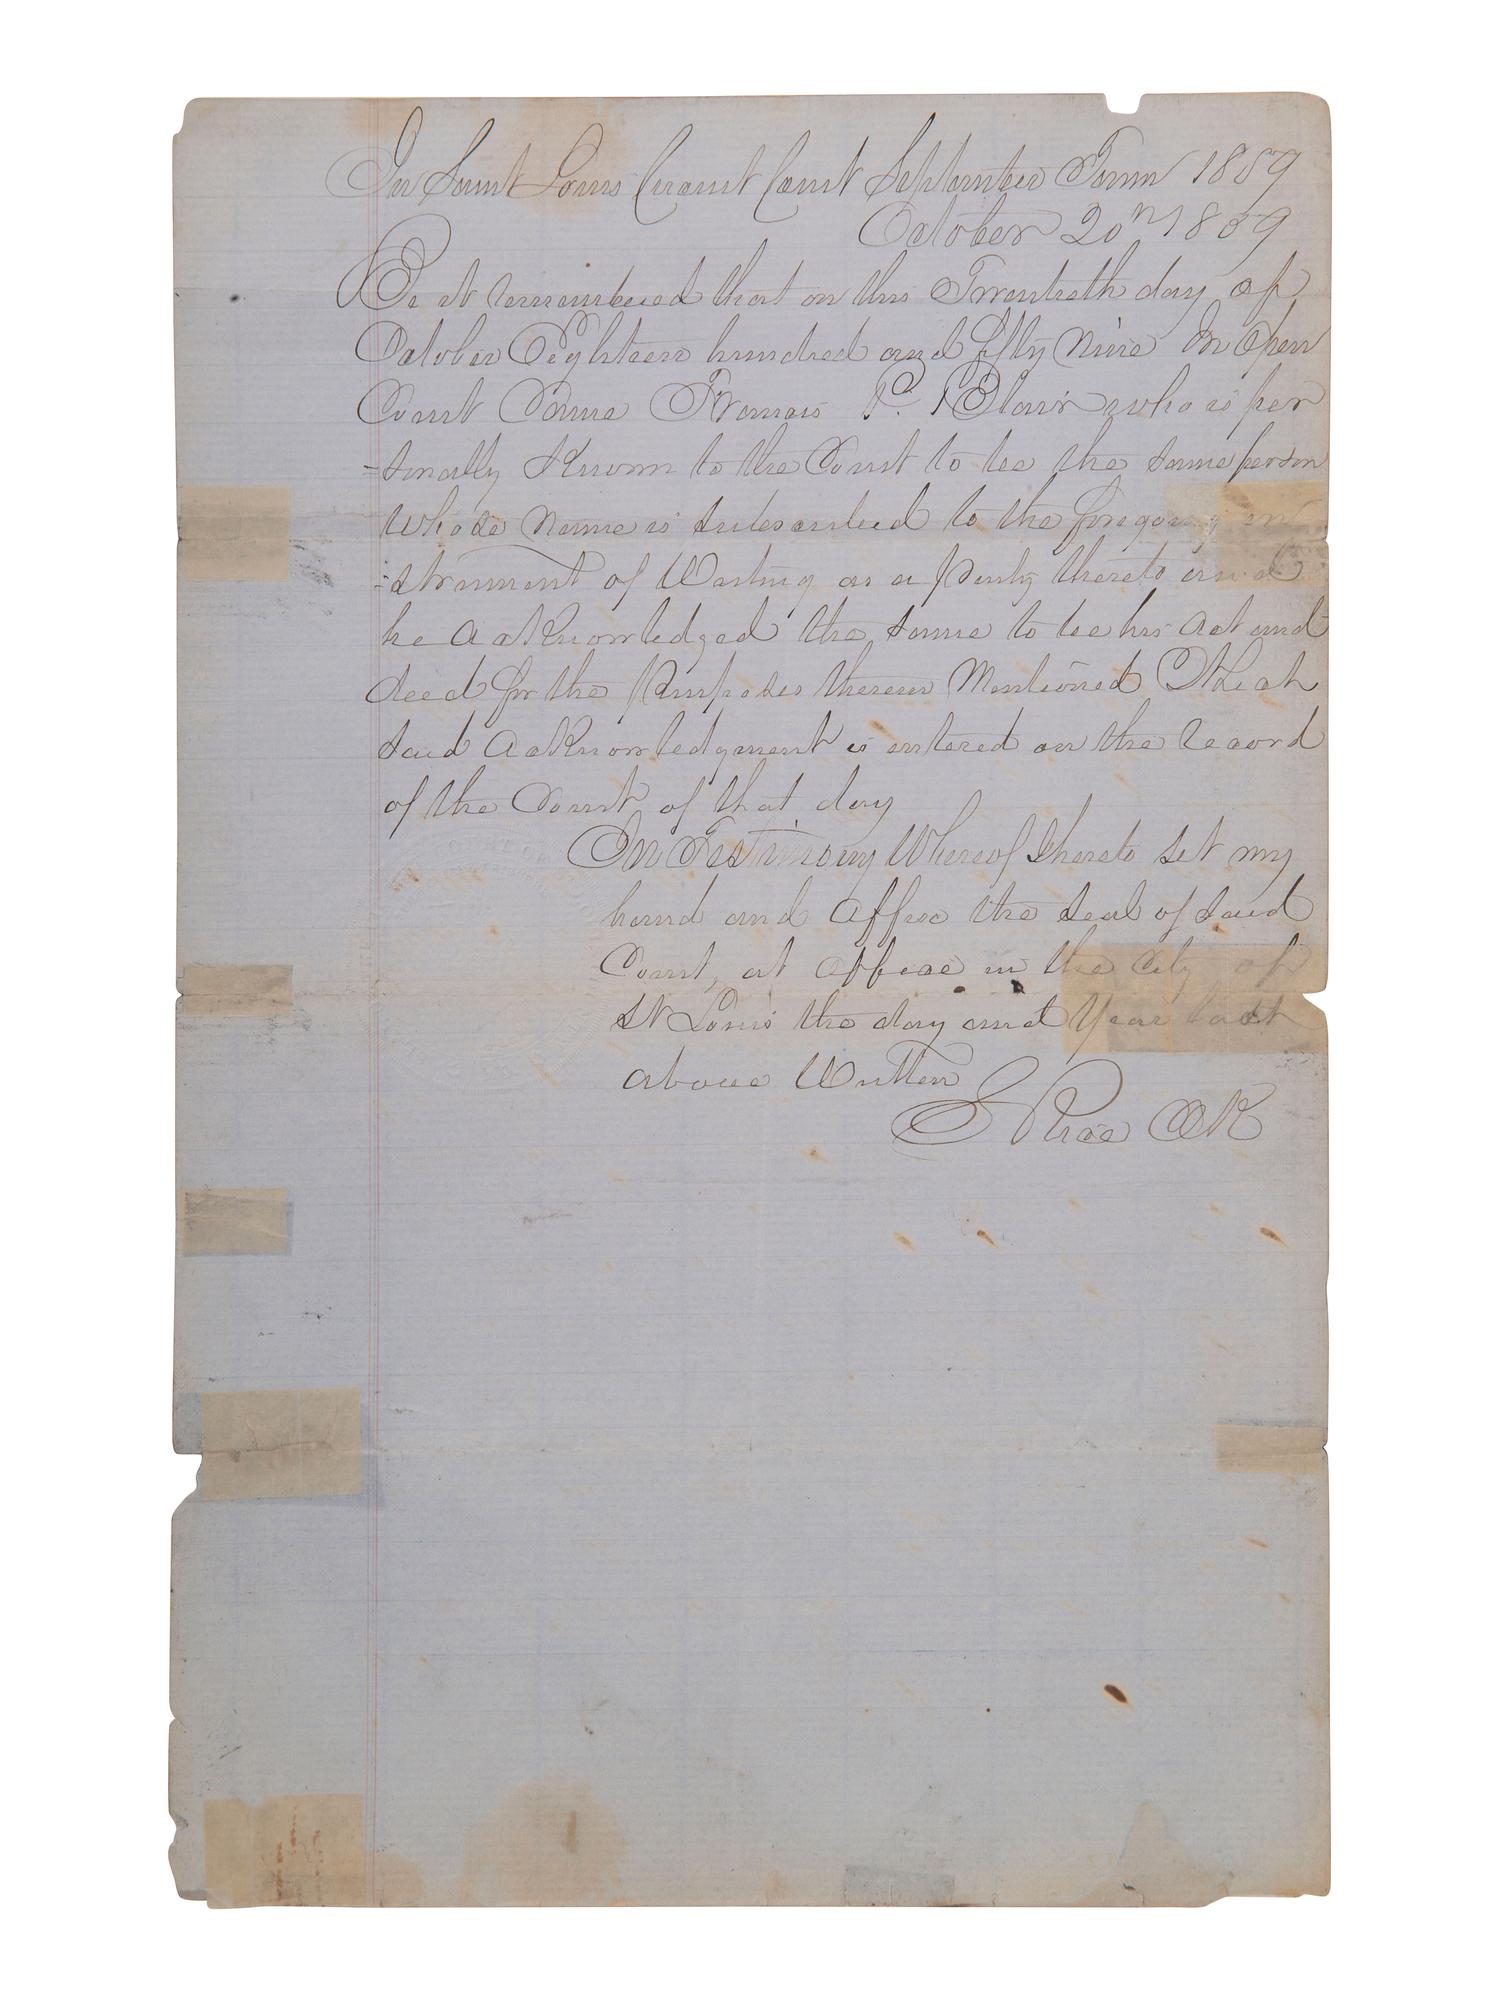 In Saint Louis Circuit Court September Term 1859
October 20th 1859
Be it remembered that on this Twentieth day of
October Eighteen hundred and fifty Nine In Open
Court Came Francis P. Blair who is per
=sonally Known to the Court to be the same person
Whose Name is subscribed to the foregoing in
=strument of Writing as a Party thereto and
he acKnowledged the same to be his Act and
deed for the Purposes therein Mentioned Which
said AcKnowledgment is entered on the record
of the Court of that day
In Testimony Whereof I hereto set my
hand and Affix the seal of said
Court, at office in the City of
St Louis the day and Year last
above Written
S Rice Clk